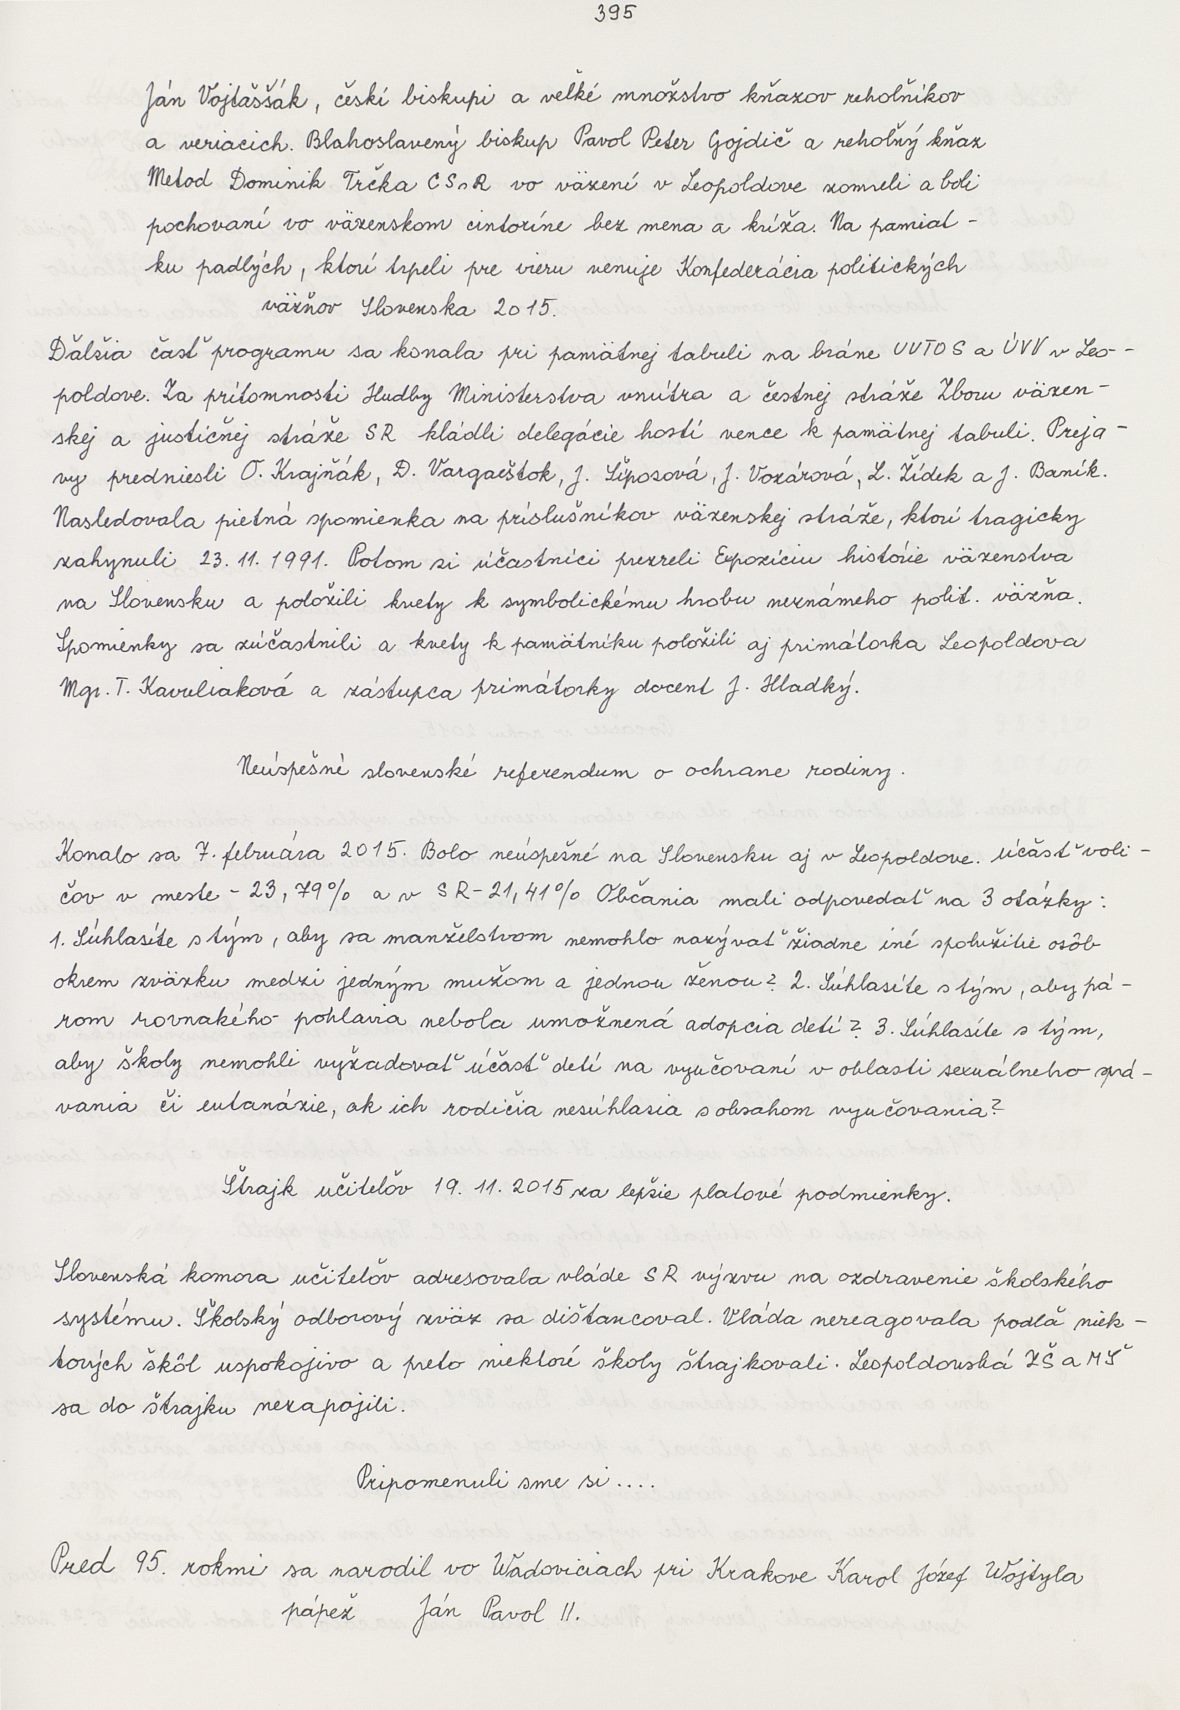 395
Ján Vojtaššák, českí biskupi a veľké množstvo kňazov rehoľníkov
a veriacich. Blahoslavený biskup Pavol Peter Gojdič a rehoľný kňaz
Metod Dominik Trčka CSsR vo väzení v Leopoldove zomreli a boli
pochovaní vo väzenskom cintoríne bez mena a kríža. Na pamiat-
ku padlých, ktorí trpeli pre vieru venuje Konfederácia politických
väzňov Slovenska 2015.
Ďalšia časť programu sa konala pri pamätnej tabuli na bráne UVTOS a ÚVV v Leo-
poldove. Za prítomnosti Hudby Ministerstva vnútra a čestnej stráže Zboru väzen-
skej a justičnej stráže SR kládli delegácie hostí vence k pamätnej tabuli. Preja-
vy predniesli O. Krajňák, D. Vargaeštok, J. Šíposová, J. Vozárová, L. Žídek a J. Baník.
Nasledovala pietná spomienka na príslušníkov väzenskej stráže, ktorí tragicky
zahynuli 23. 11. 1991. Potom si účastníci prezreli Expozíciu histórie väzenstva
na Slovensku a položili kvety k symbolickému hrobu neznámeho polit. väzňa.
Spomienky sa zúčastnili a kvety k pamätníku položili aj primátorka Leopoldova
Mgr. T. Kavuliaková a zástupca primátorky docent J. Hladký.
Neúspešné slovenské referendum o ochrane rodiny.
Konalo sa 7. februára 2015. Bolo neúspešné na Slovensku aj v Leopoldove. Účasť voli-
čov v meste - 23,79% a v SR - 21,41% Občania mali odpovedať na 3 otázky:
1. Súhlasíte s tým, aby sa manželstvom nemohlo nazývať žiadne iné spolužitie osôb
okrem zväzku medzi jedným mužom a jednou ženou? 2. Súhlasíte s tým, aby pá-
rom rovnakého pohlavia nebola umožnená adopcia detí? 3. Súhlasíte s tým,
aby školy nemohli vyžadovať účasť detí na vyučovaní v oblasti sexuálneho sprá-
vania či eutanázie, ak ich rodičia nesúhlasia s obsahom vyučovania?
Štrajk učiteľov 19. 11. 2015 za lepšie platové podmienky.
Slovenská komora učiteľov adresovala vláde SR výzvu na ozdravenie školského
systému. Školský odborový zväz sa dištancoval. Vláda nereagovala podľa niek-
torých škôl uspokojivo a preto niektoré školy štrajkovali. Leopoldovská ZŠ a MŠ
sa do štrajku nezapojili.
Pripomenuli sme si....
Pred 95. rokmi sa narodil vo Wadoviciach pri Krakove Karol Józef Wojtyla
pápež Ján Pavol II.